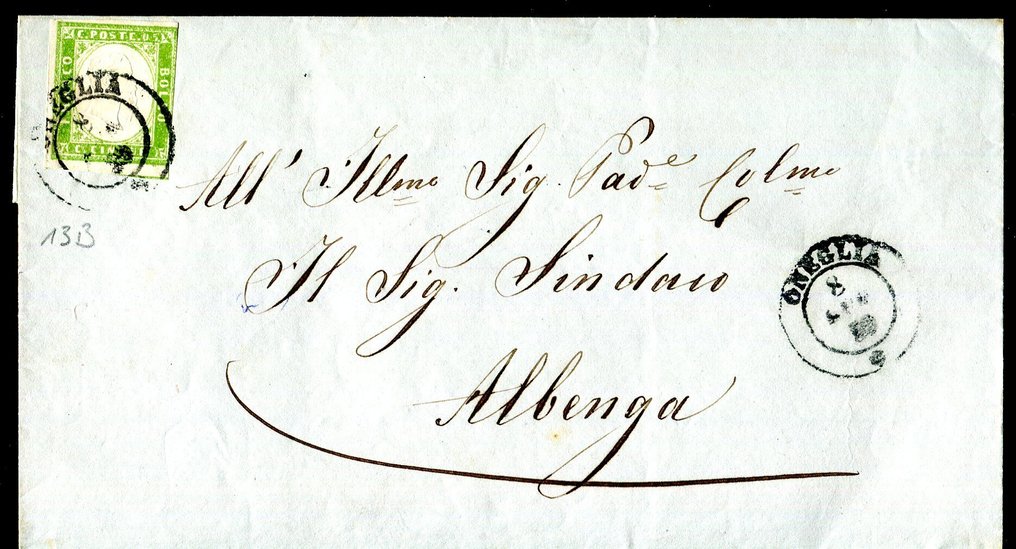 C. POSTE. 05
BOLLO
C. CIN
ONEGLIA
8
13B
All' Illmo Sig. Pade Colmo
Il Sig. Sindaco
Albenga
ONEGLIA
8